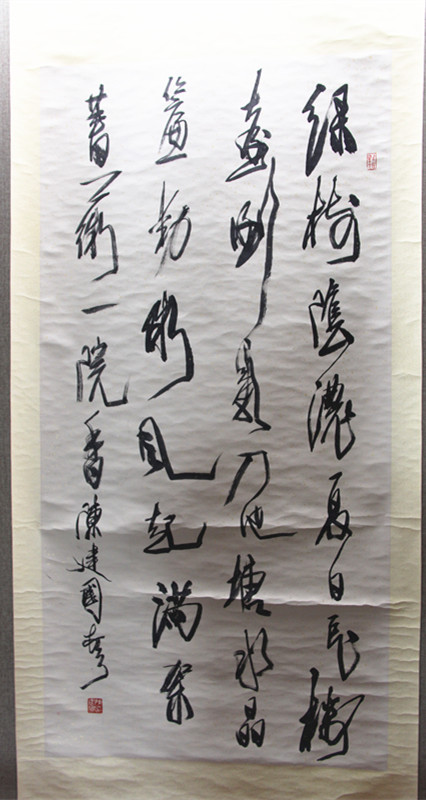 绿樹陰濃夏日長樓
臺倒影入池塘水晶
簾動微風起滿架
薔薇一院香陳建國書